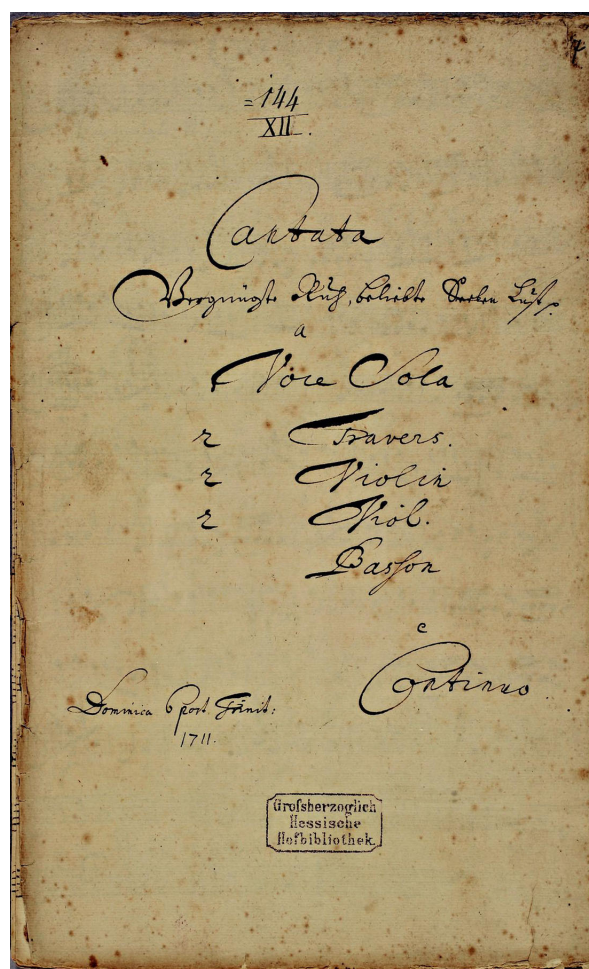 =144
XII.
Cantata
Vergnügte Ruh, beliebte Seelen Lust
a
Voce Sola
2 Travers.
2 Violin
2 Viol.
Basson
e
Continuo
Dominica 6 post. Trinit:
1711.
Großherzoglich
Hessische
Hofbibliothek.